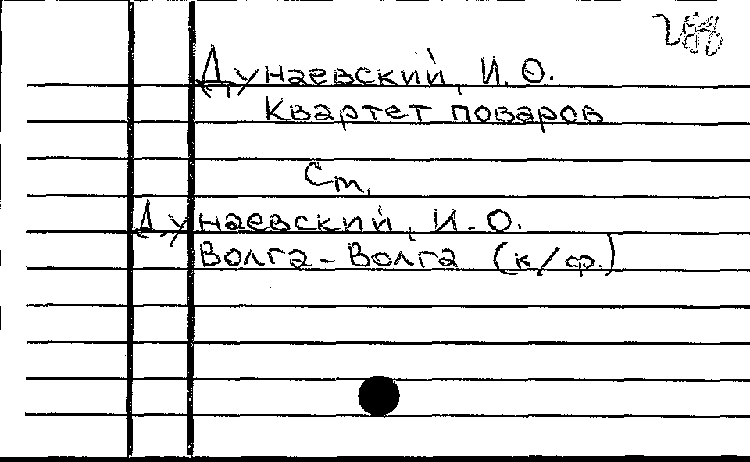 288
Дунаевский, И. О.
Квартет поваров
Cm.
Дунаевский, И. О.
Волга-Волга (к/ф.)